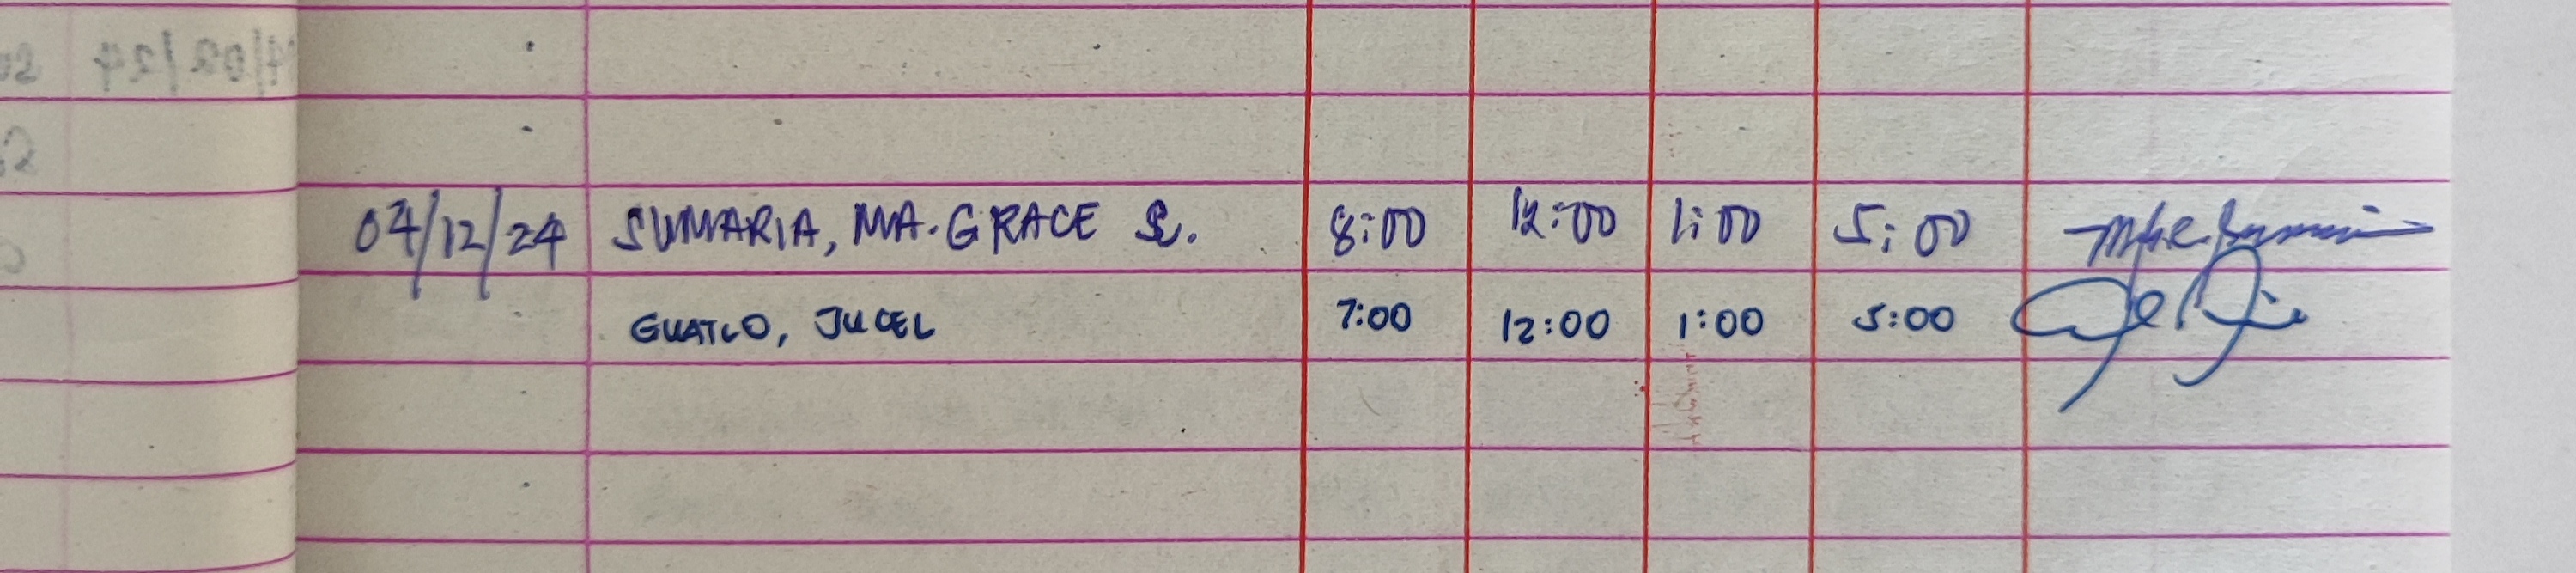 04/12/24 SUMARIA, MA. GRACE S. 8:00 12:00 1:00 5:00
GUATLO, JUCEL 7:00 12:00 1:00 5:00